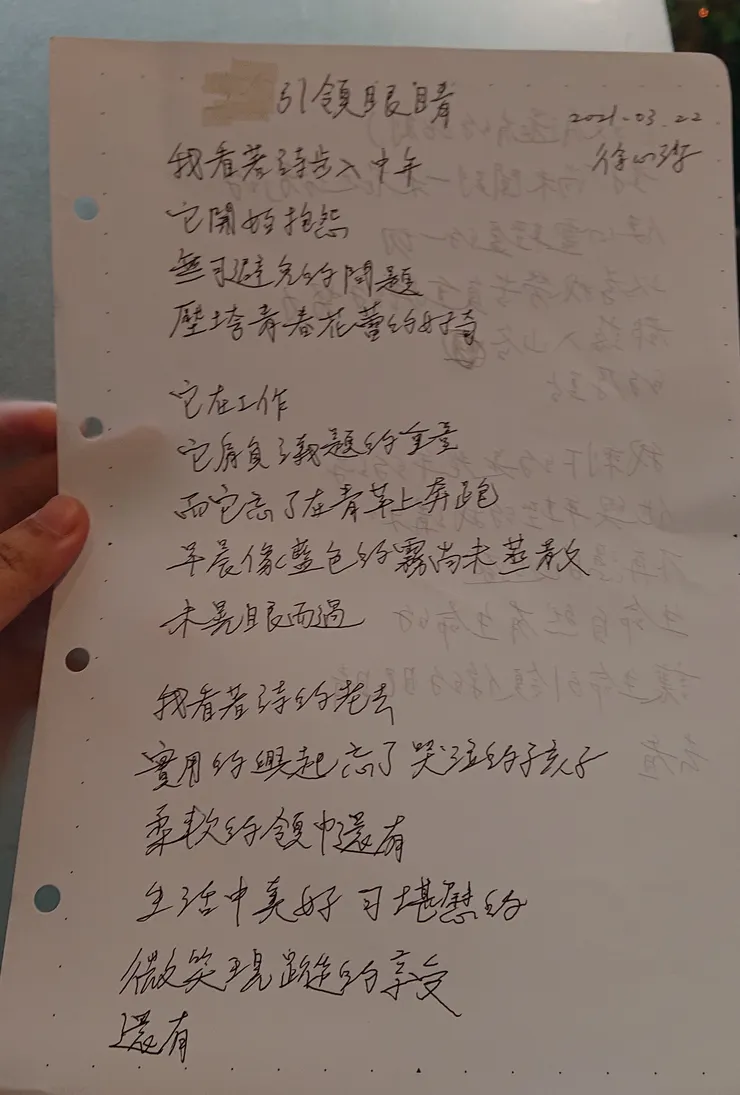 引領眼睛
2021.03.22
我看著詩步入中年
它開始抱怨
無可避免的問題
壓垮青春花蕾的好奇
它在工作
它肩負議題的重量
而它忘了在青草上奔跑
早晨像藍色的霧尚未蒸散
未晃眼而過
我看著詩的老去
實用的興起忘了哭泣的孩子
柔軟的領巾還有
生活中美好可堪慰的
微笑現蹤的享受
還有